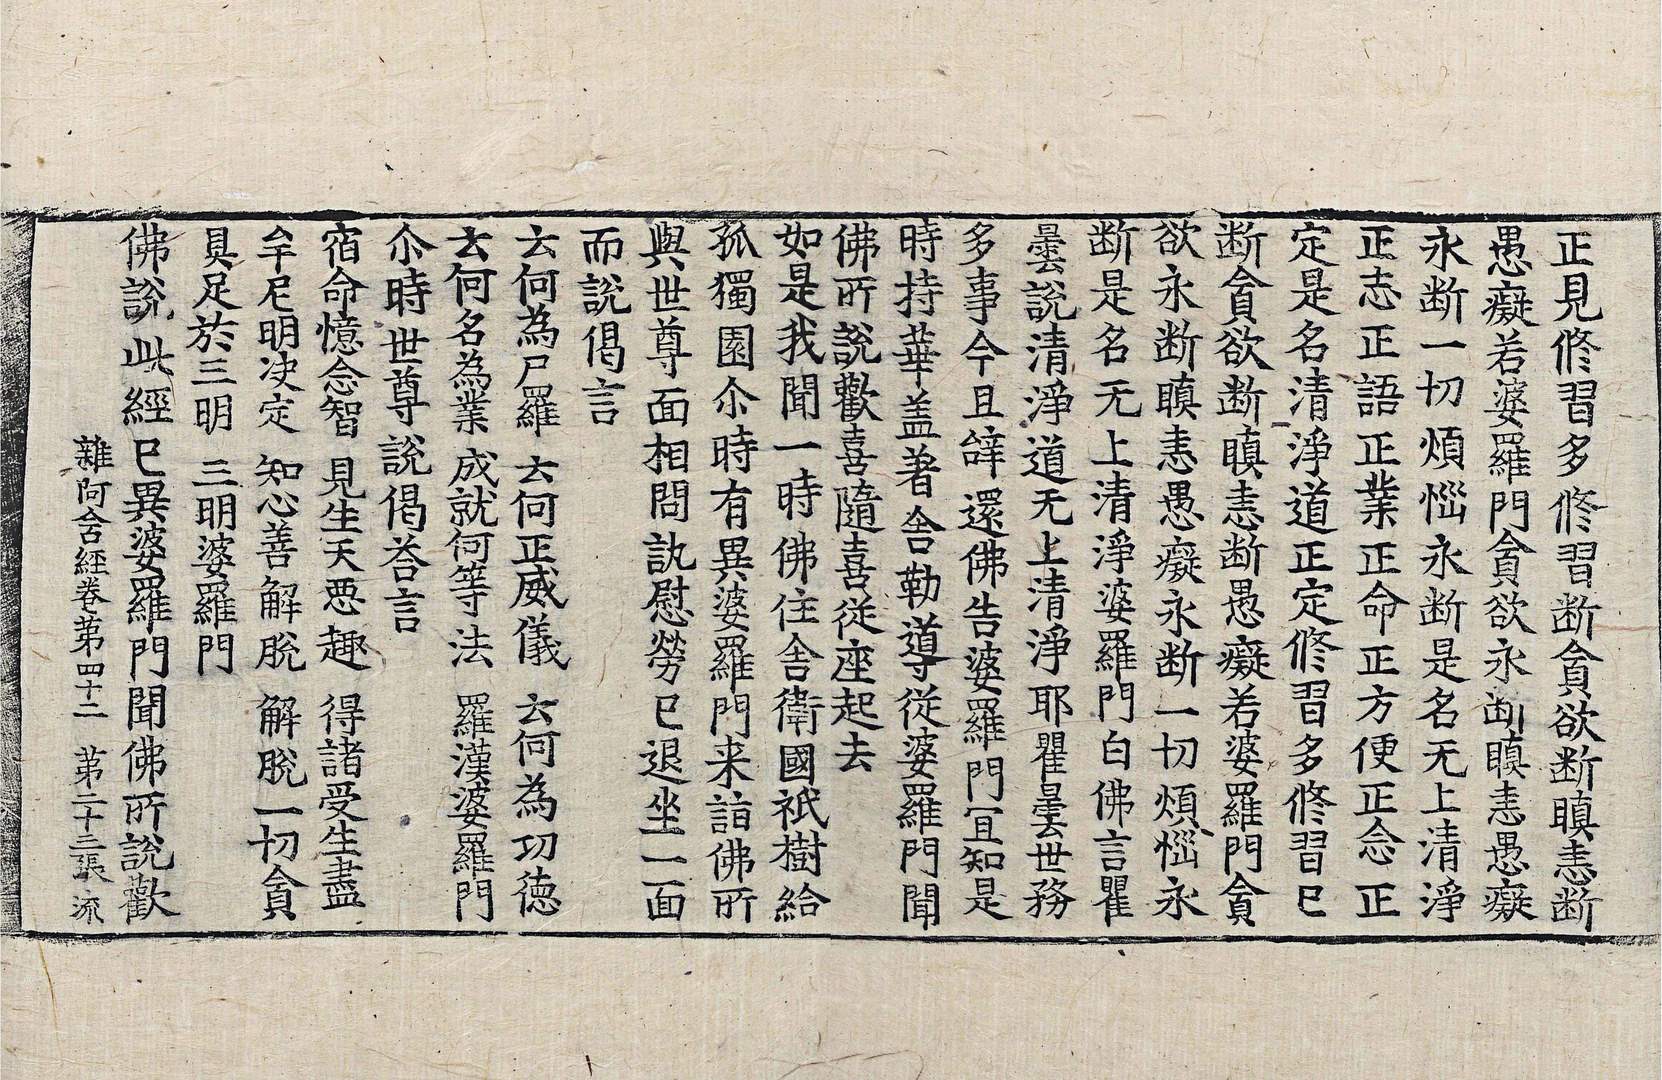 正見修習多修習断貪欲断瞋恚断
愚癡若婆羅門貪欲永断瞋恚愚癡
永断一切煩惱永断是名无上清淨
正志正語正業正命正方便正念正
定是名清淨道正定修習多修習已
断貪欲断瞋恚断愚癡若婆羅門貪
欲永断瞋恚愚癡永断一切煩惱永
断是名无上清淨婆羅門白佛言瞿
曇說清淨道无上清淨耶瞿曇世務
多事今且辝還佛告婆羅門冝知是
時持華盖著舎勒導從婆羅門聞
佛所說歡喜隨喜従座起去
如是我聞一時佛住舎衛國祇樹給
孤獨園尒時有異婆羅門来詣佛所
與世尊面相問訊慰勞已退坐一面
而說偈言
云何為尸羅　云何正威儀　云何為功徳
云何名為業　成就何等法　羅漢婆羅門
尒時世尊說偈荅言
宿命憶念智　見生天悪趣　得諸受生盡
牟尼明决定　知心善解脱　解脱一切貪
具足於三明　三明婆羅門
佛說此經已異婆羅門聞佛所說歡
雜阿含經卷第四十二　第二十三張　流